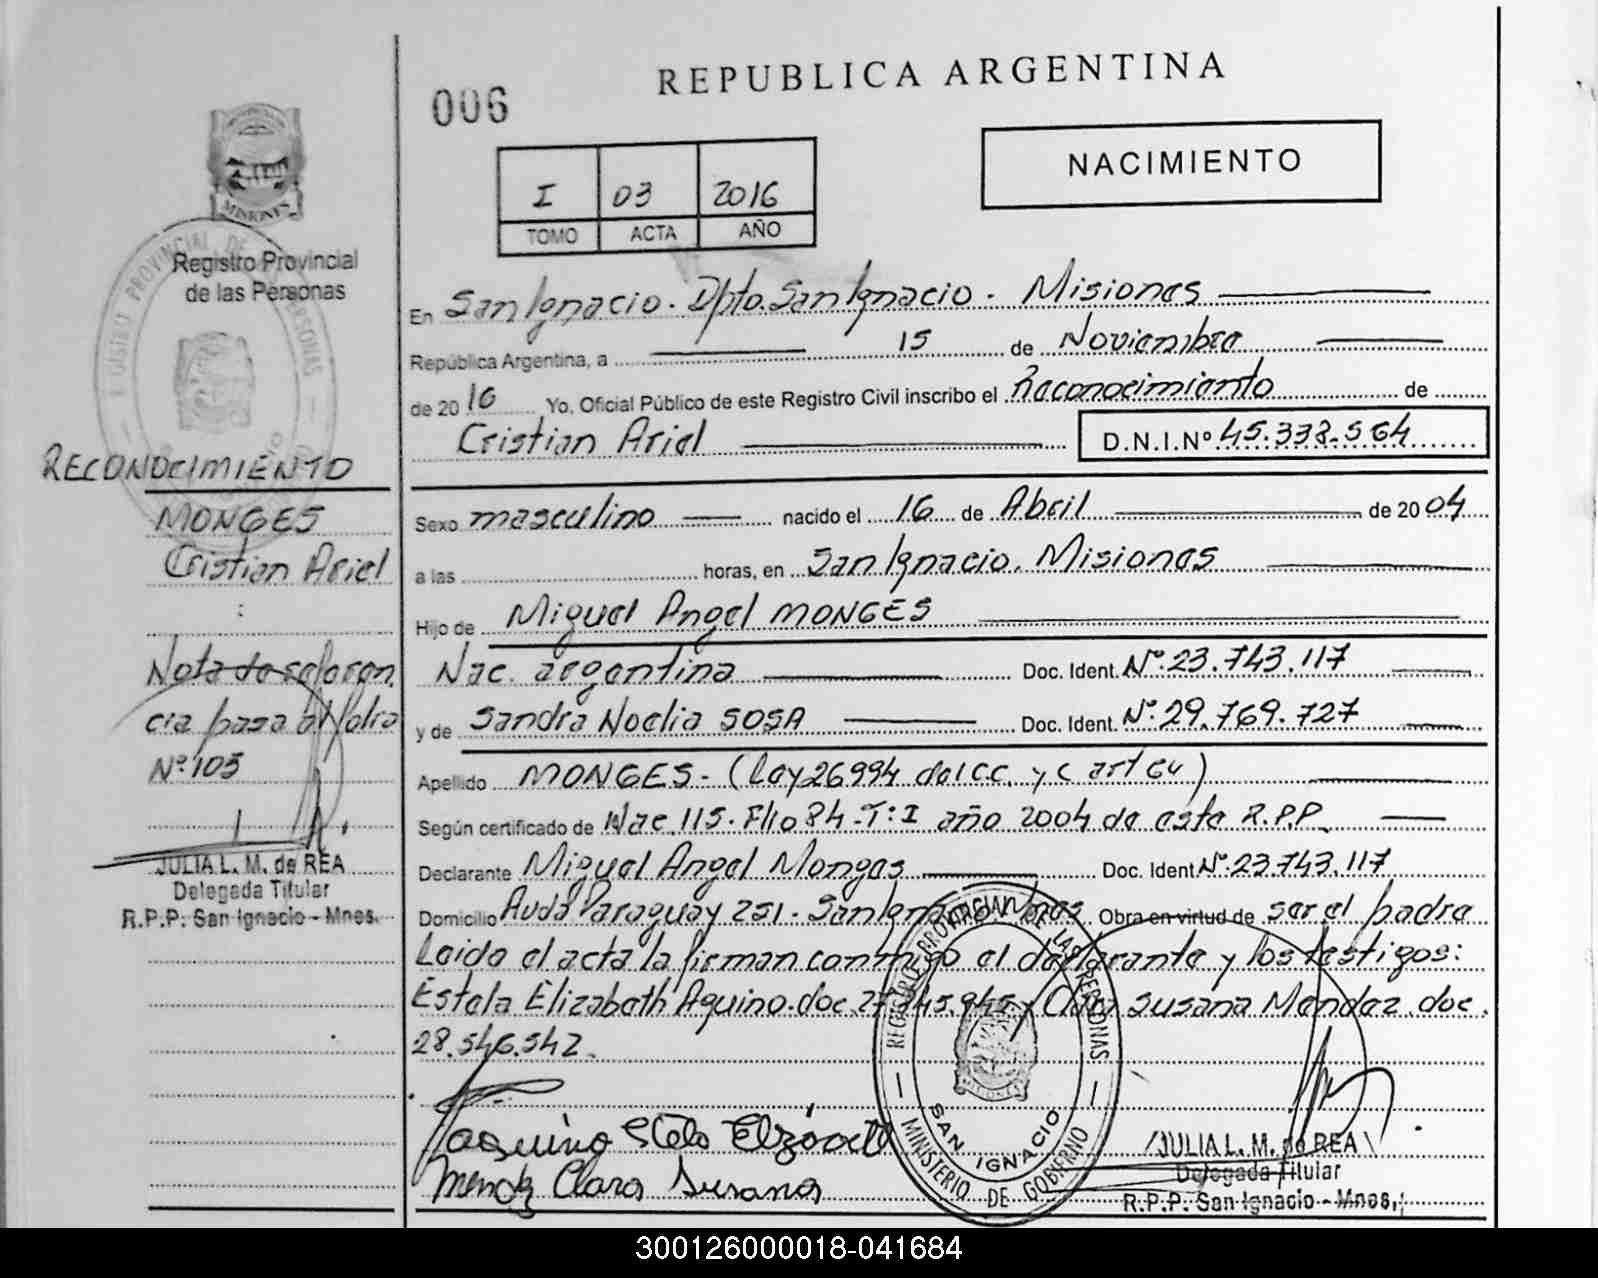 REPUBLICA ARGENTINA
006
NACIMIENTO
I 03 2016
TOMO ACTA AÑO
MISIONES
Registro Provincial
de las Personas
En San Ignacio. Dpto. San Ignacio. Misiones
República Argentina, a 15 de Noviembre
de 20 16 Yo, Oficial Público de este Registro Civil inscribo el Reconocimiento de
Cristian Ariel D.N.I.Nº 45.338.564
RECONOCIMIENTO
MONGES
Cristian Ariel
Sexo masculino nacido el 16 de Abril de 20 04
a las horas, en San Ignacio. Misiones
Hijo de Miguel Angel MONGES
Nac. argentina Doc. Ident. Nº.23.743.117
y de Sandra Noelia SOSA Doc. Ident. Nº.29.769.727
Nota de referen
cia pasa al folio
Nº 105
Apellido MONGES- (Ley 26994 del CC. y C art 64)
Según certificado de Nac. 115. Flio 84 -T:I año 2004 de este R.P.P.
Declarante Miguel Angel Monges Doc. Ident Nº.23.743.117
JULIA L. M. de REA
Delegada Titular
R.P.P. San Ignacio - Mnes.
Domicilio Avda Paraguay 251 - San Ignacio Mnes. Obra en virtud de ser el padre
Leido el acta la firman conmigo el declarante y los testigos:
Estela Elizabeth Aquino. doc. 945 y Clara Susana Mendez. doc.
28.546.542.
Aquino Stela Elizabeth
Mendez Clara Susana
REGISTRO PROVINCIAL DE LAS PERSONAS
SAN IGNACIO
MINISTERIO DE GOBIERNO
JULIA L. M. de REA
Delegada Titular
R.P.P. San Ignacio - Mnes.
300126000018-041684